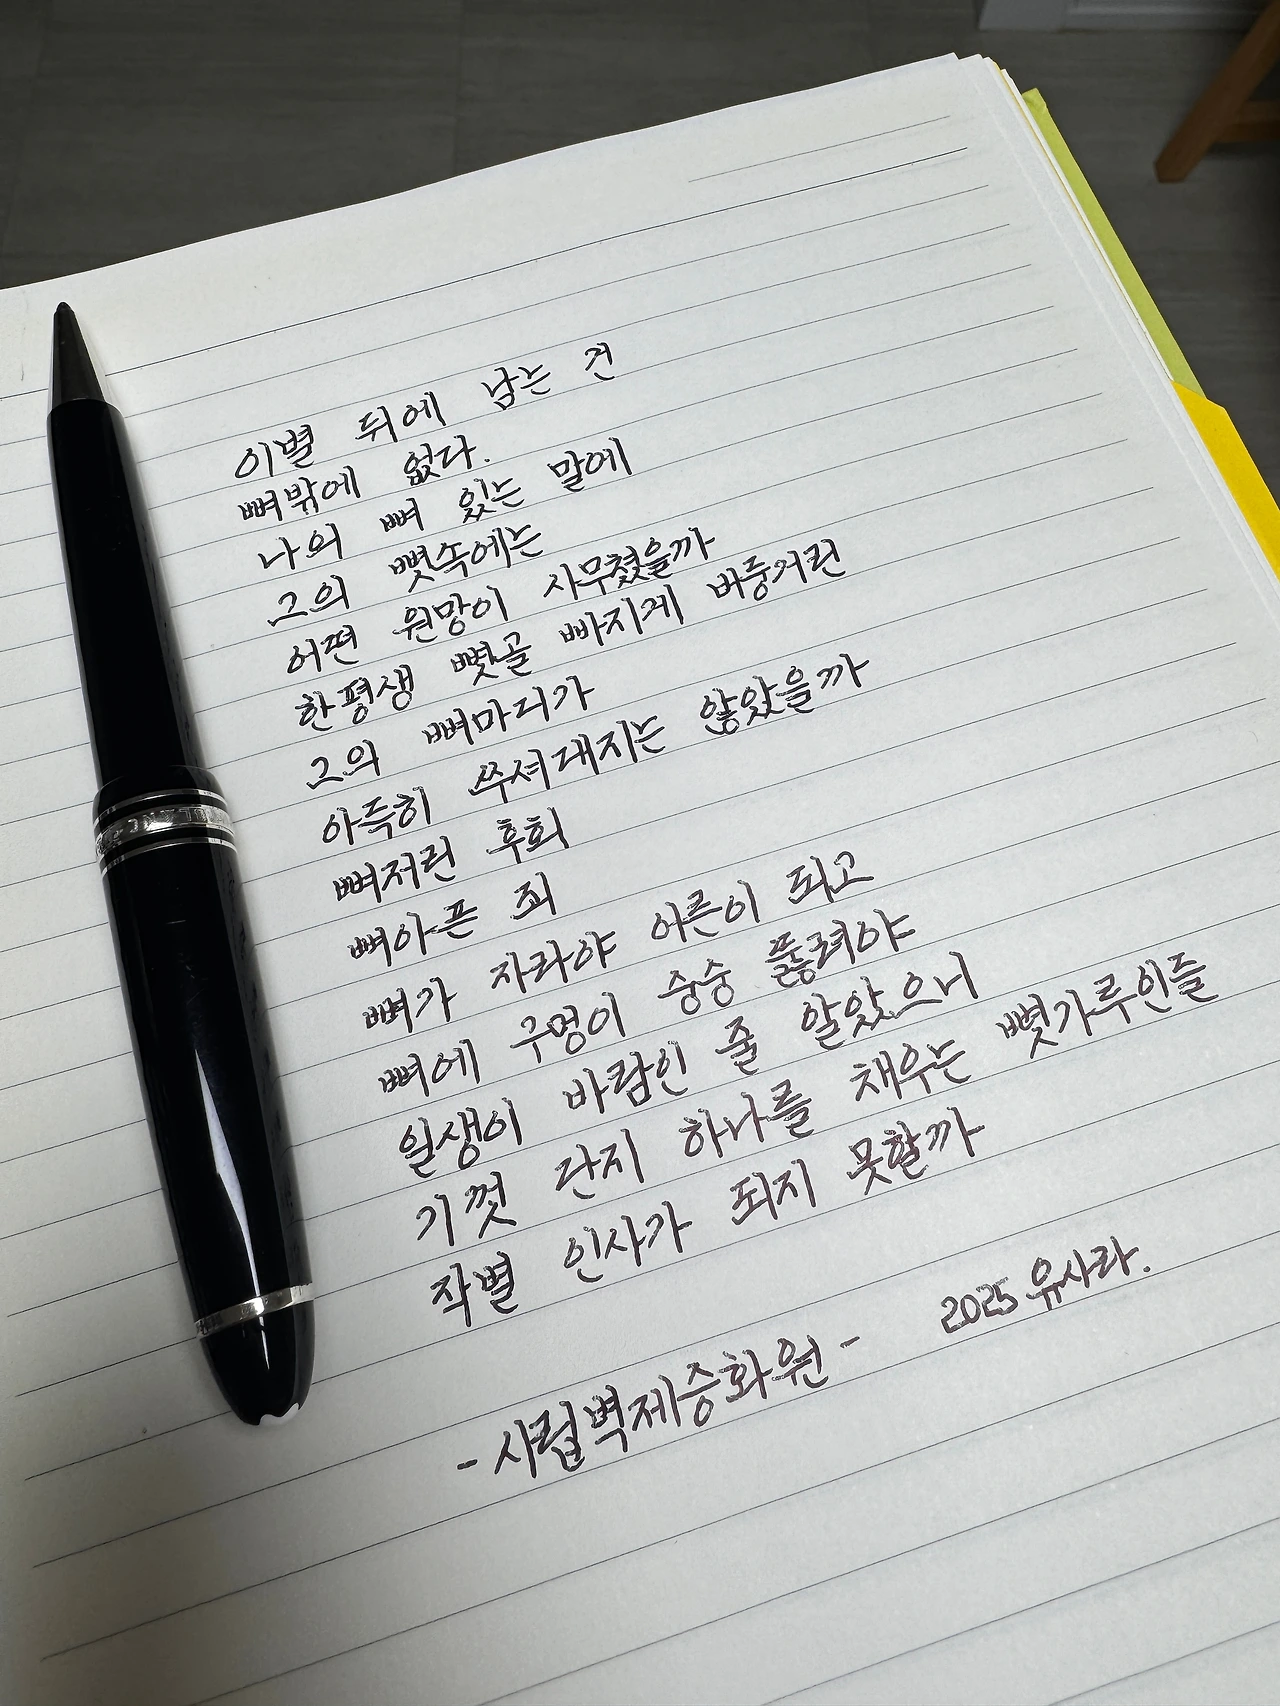 이별 뒤에 남는 건
뼈밖에 없다.
나의 뼈 있는 말에
그의 뼛속에는
어떤 원망이 사무쳤을까
한평생 뼛골 빠지게 버둥거린
그의 뼈마디가
아득히 쑤셔대지는 않았을까
뼈저린 후회
뼈아픈 죄
뼈가 자라야 어른이 되고
뼈에 구멍이 숭숭 뚫려야
일생이 바람인 줄 알았으니
기껏 단지 하나를 채우는 뼛가루인들
작별 인사가 되지 못할까
2025 유사라.
- 시립벽제승화원 -